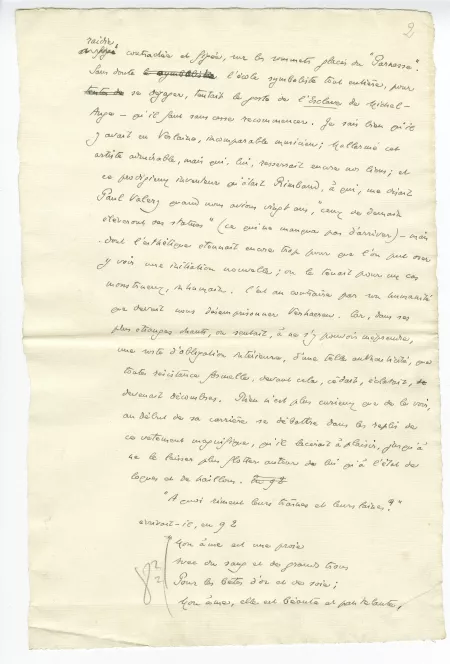 2
raidie
contractée et figée, sur les sommets glacés du "Parnasse".
Sans doute le symboliste l'école symboliste tout entière, pour
tenta de se dégager, tentait le geste de l'Esclave de Michel-
Ange - qu'il faut sans cesse recommencer. Je sais bien qu'il
y avait eu Verlaine, incomparable musicien; Mallarmé cet
artiste admirable, mais qui, lui, resserrait encore nos liens; et
ce prodigieux inventeur qu'était Rimbaud, à qui, me disait
Paul Valéry quand nous avions vingt ans, "ceux de demain
élèveront des statues" (ce qui ne manqua pas d'arriver) - mais
dont l'esthétique étonnait encore trop pour que l'on pût oser
y voir une initiation nouvelle; on le tenait pour un cas
monstrueux, inhumain. C'est au contraire par son humanité
que devait nous désemprisonner Verhaeren. Car, dans ses
plus étranges chants, on sentait, à ne s'y pouvoir méprendre,
une sorte d'obligation intérieure, d'une telle authenticité, que
toute résistance formelle, devant cela, cédait, éclatait,
devenait décombres. Rien n'est plus curieux que de le voir,
au début de sa carrière se débattre dans les replis de
ce vêtement magnifique, qu'il lacérait à plaisir, jusqu'à
ne le laisser plus flotter autour de lui qu'à l'état de
loques et de haillons. En 92
"A quoi riment leurs traînes et leurs laines?"
écrivait-il, en 92
Mon âme est une proie
Avec du sang et de grands trous
Pour les bêtes d'or et de soie;
Mon âme, elle est béante et pantelante,